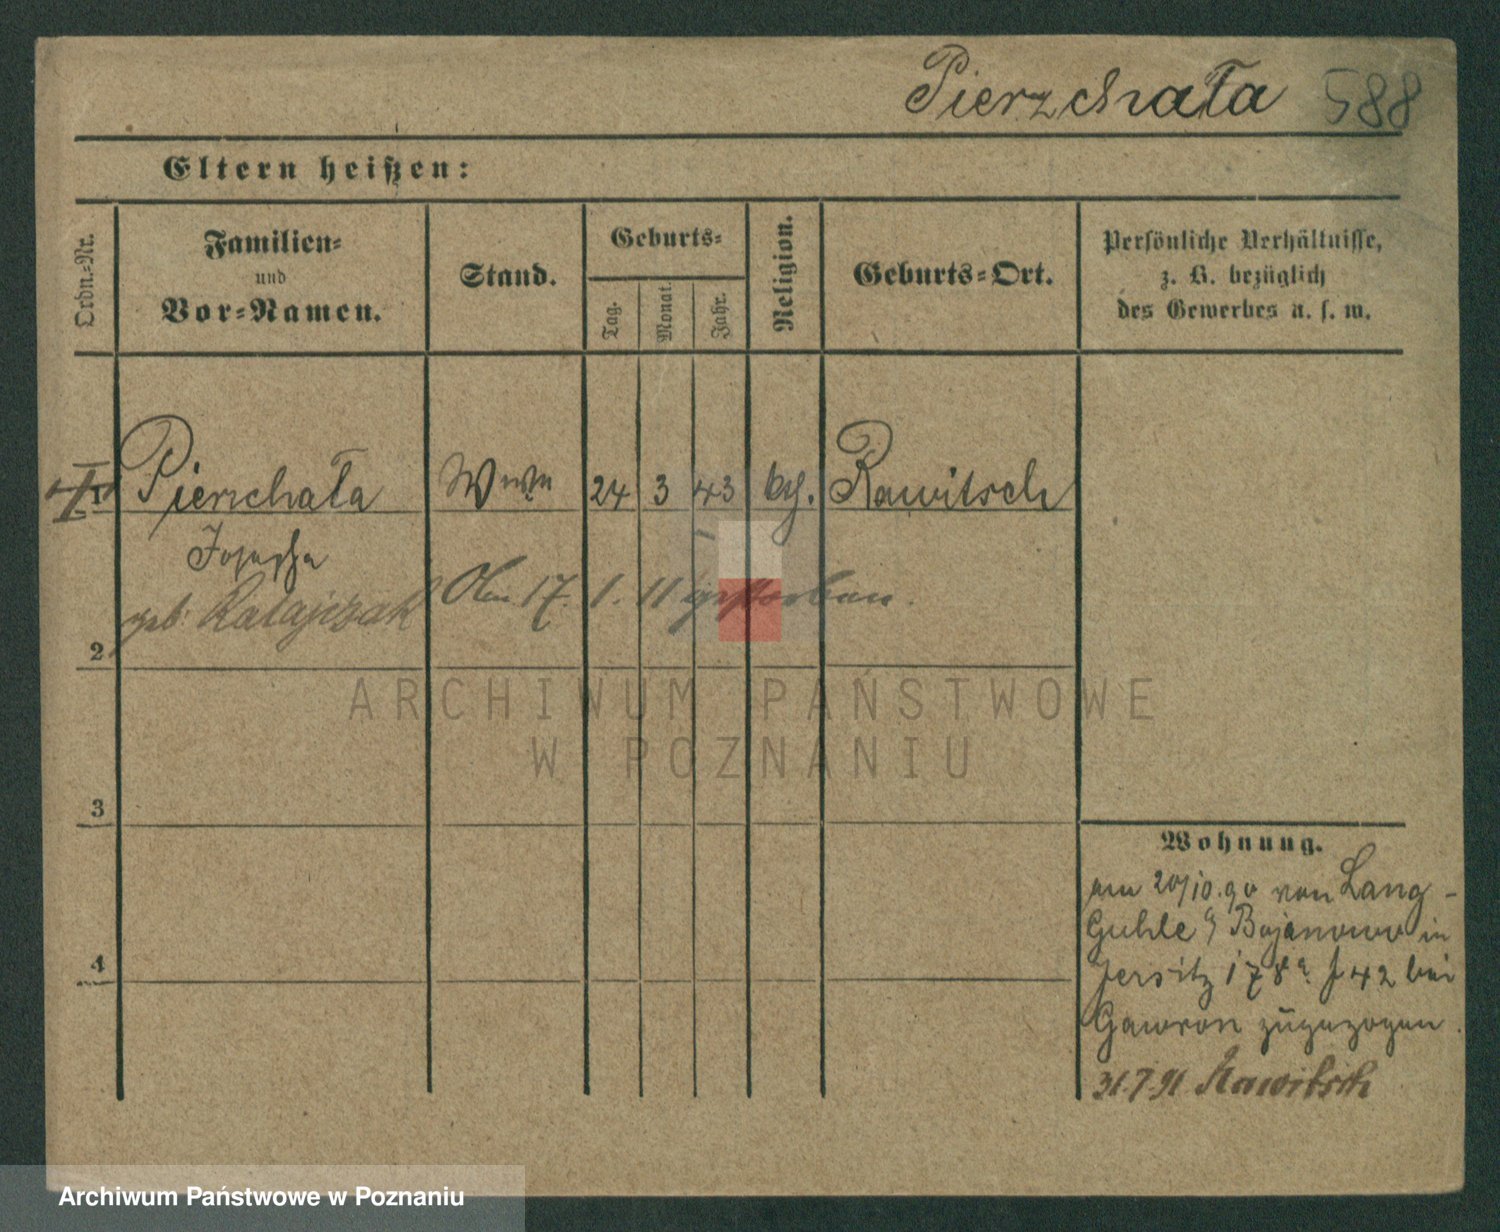 Pierzchała 588
Eltern heißen:
Ordn.-Nr.
Familien-
und
Vor-Namen.
Stand.
Geburts-
Tag.
Monat.
Jahr.
Religion.
Geburts-Ort.
Persönliche Verhältnisse,
z. B. bezüglich
des Gewerbes u. s. w.
1 Pierschała Wwe 24 3 43 kth. Rawitsch
Josepha
geb. Ratajczak Am 17. 1. 11 gestorben.
2
ARCHIWUM PAŃSTWOWE
W POZNANIU
3
Wohnung.
am 20/10.90 von Lang-
Guhle Bojanowo in
Jersitz 178a J 42 bei
Gawron zugezogen.
4
31.7.91 Rawitsch
Archiwum Państwowe w Poznaniu